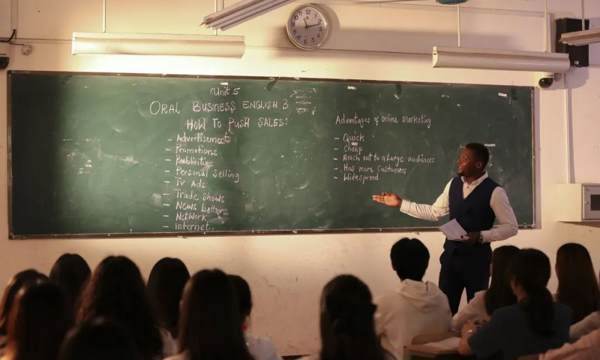 Unit 5
ORAL BUSINESS ENGLISH 3
HOW TO PUSH SALES!
- Advertisement
- Promotions
- Publicity
- Personal selling
- TV Ads
- Trade shows
- News letters
- Network
- Internet
Advantages of online marketing
- Quick
- Cheap
- Reach out to a large audiences
- Has more customers
- Widespread